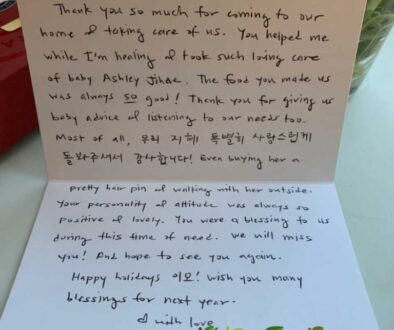 Thank you so much for coming to our
home & taking care of us. You helped me
while I'm healing & took such loving care
of baby Ashley Jihae. The food you made us
was always so good! Thank you for giving us
baby advice & listening to our needs too.
Most of all, 우리 지혜 특별히 사랑스럽게
돌봐주셔서 감사합니다! Even buying her a
pretty hair pin & walking with her outside.
Your personality & attitude was always so
positive & lovely. You were a blessing to us
during this time of need. We will miss
you! And hope to see you again.
Happy holidays 이모! Wish you many
blessings for next year.
& with love